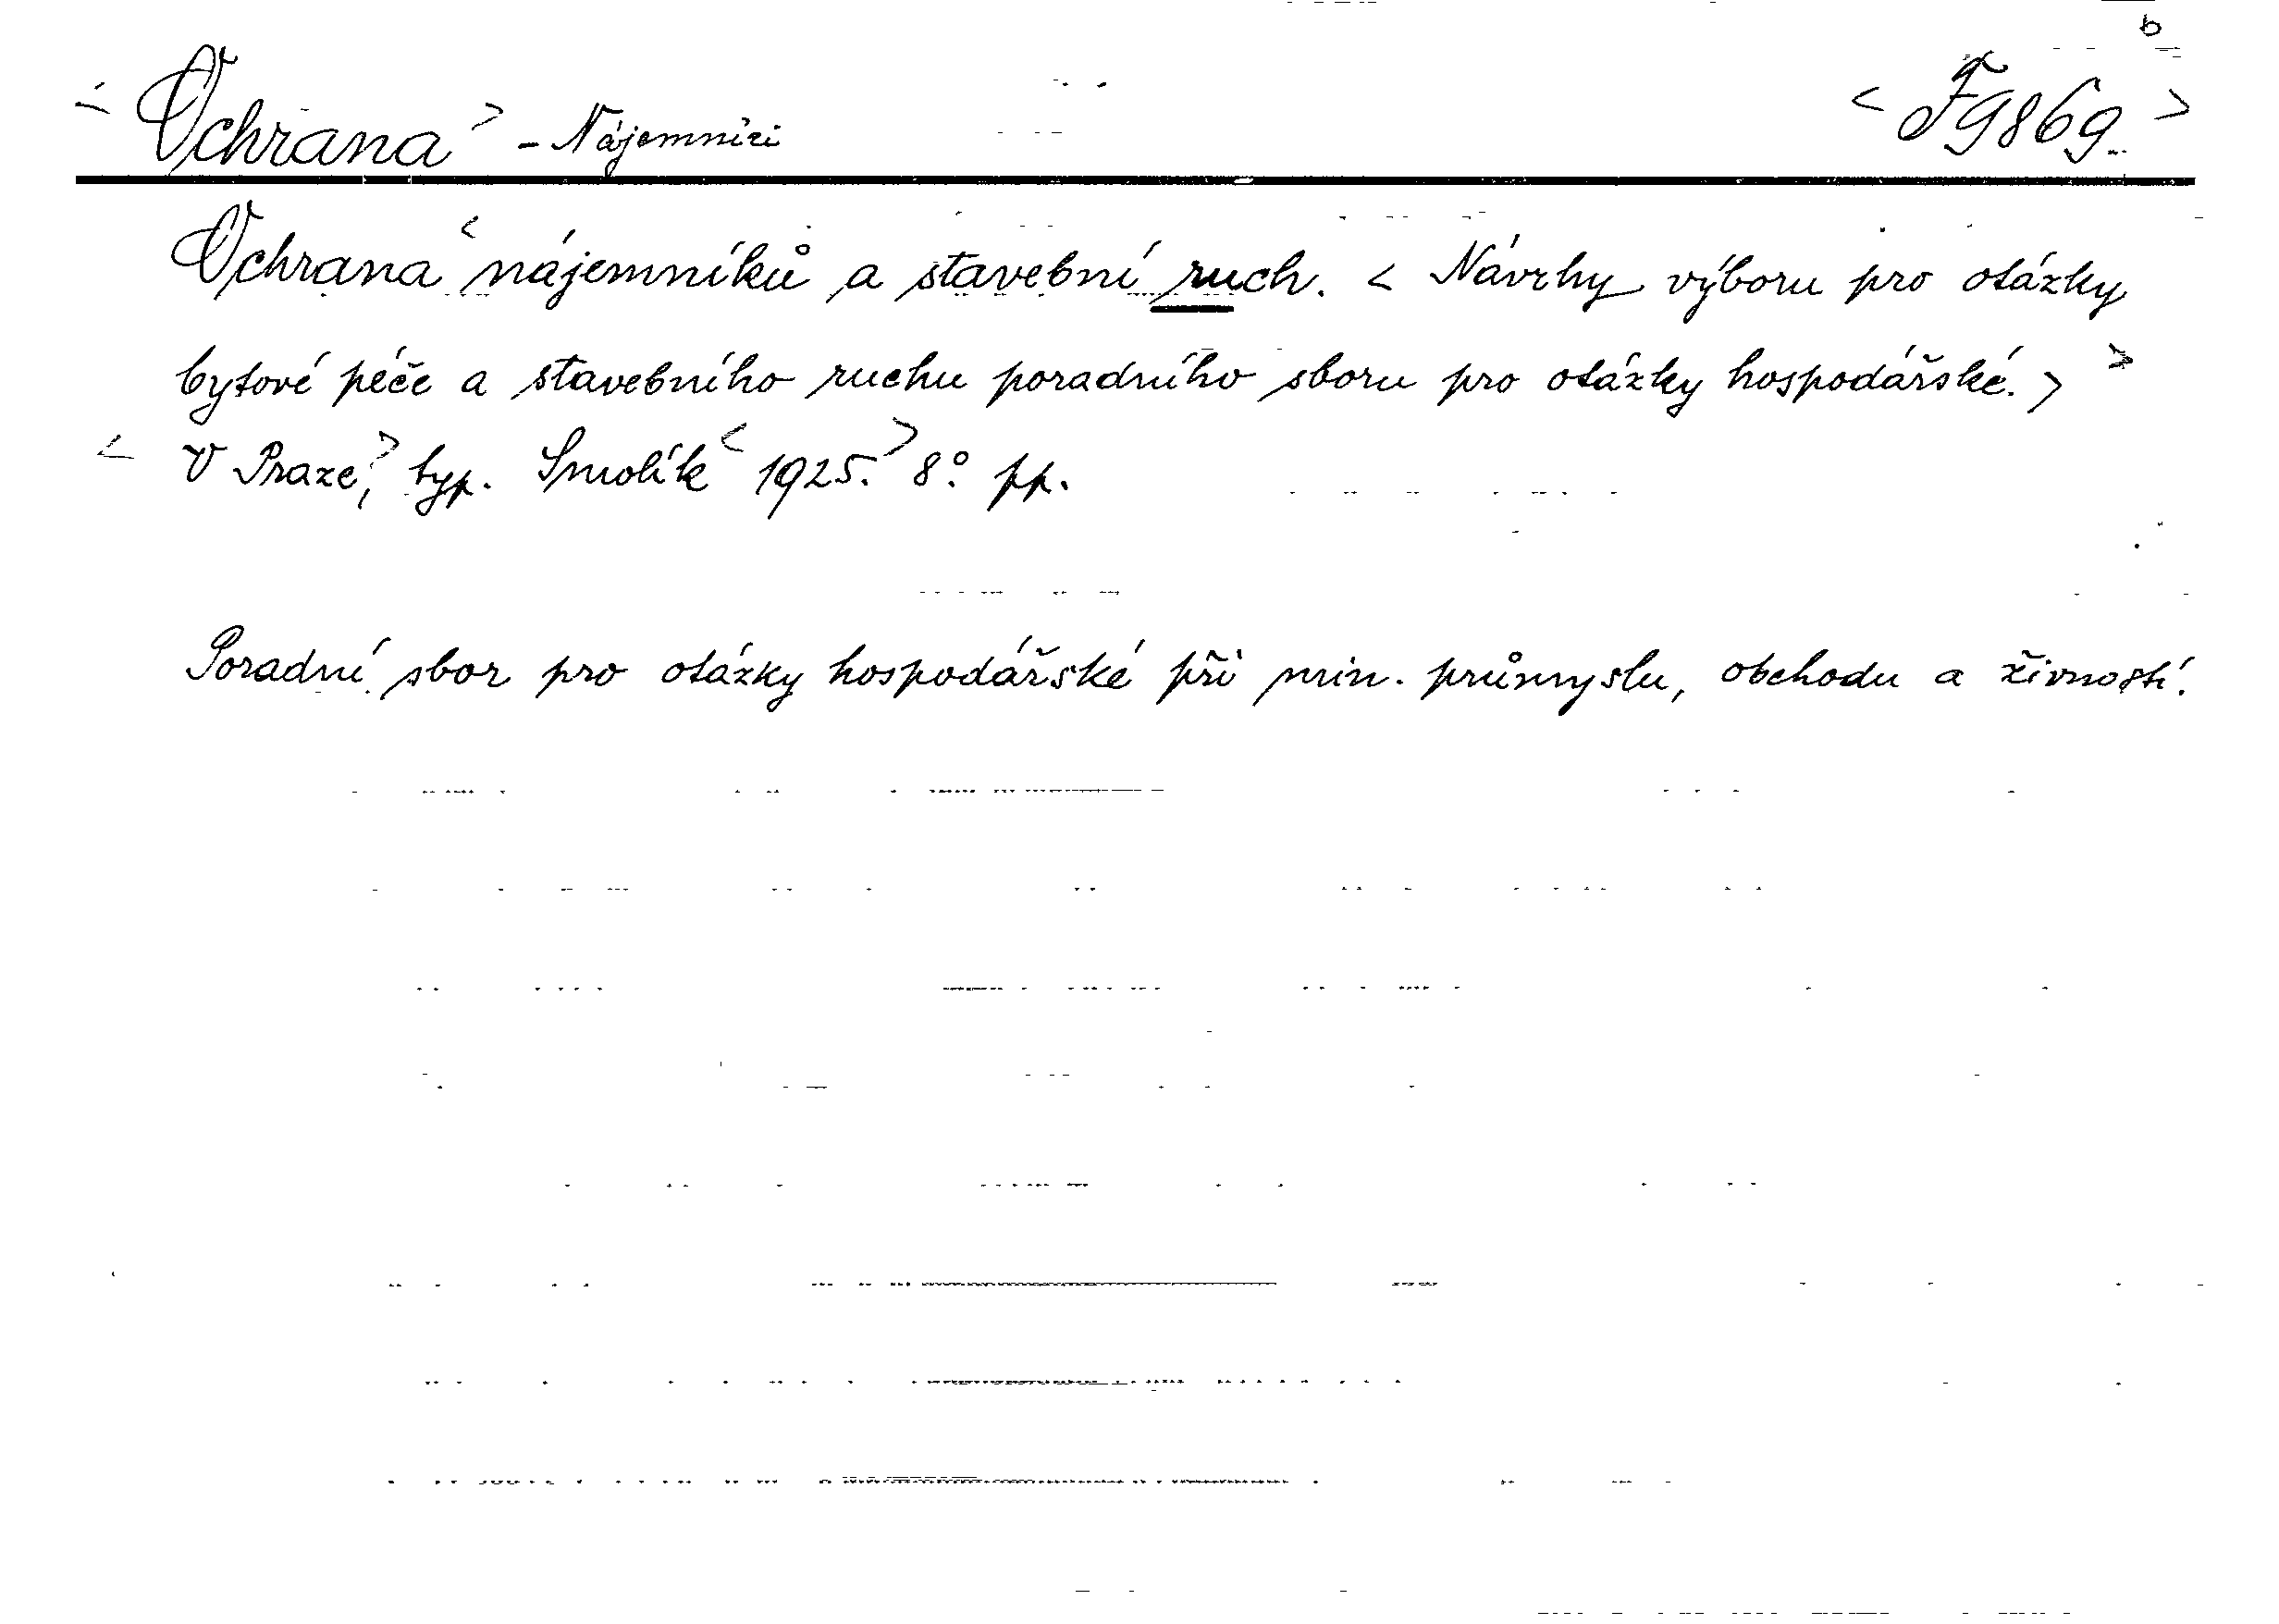 b
< Ochrana > - Nájemníci < F 9869. >
Ochrana < nájemníků a stavební ruch. < Návrhy výboru pro otázky
bytové péče a stavebního ruchu poradního sboru pro otázky hospodářské. > >
< V Praze, > typ. Smolík < 1925. > 8° pp.
Poradní sbor pro otázky hospodářské při min. průmyslu, obchodu a živností.